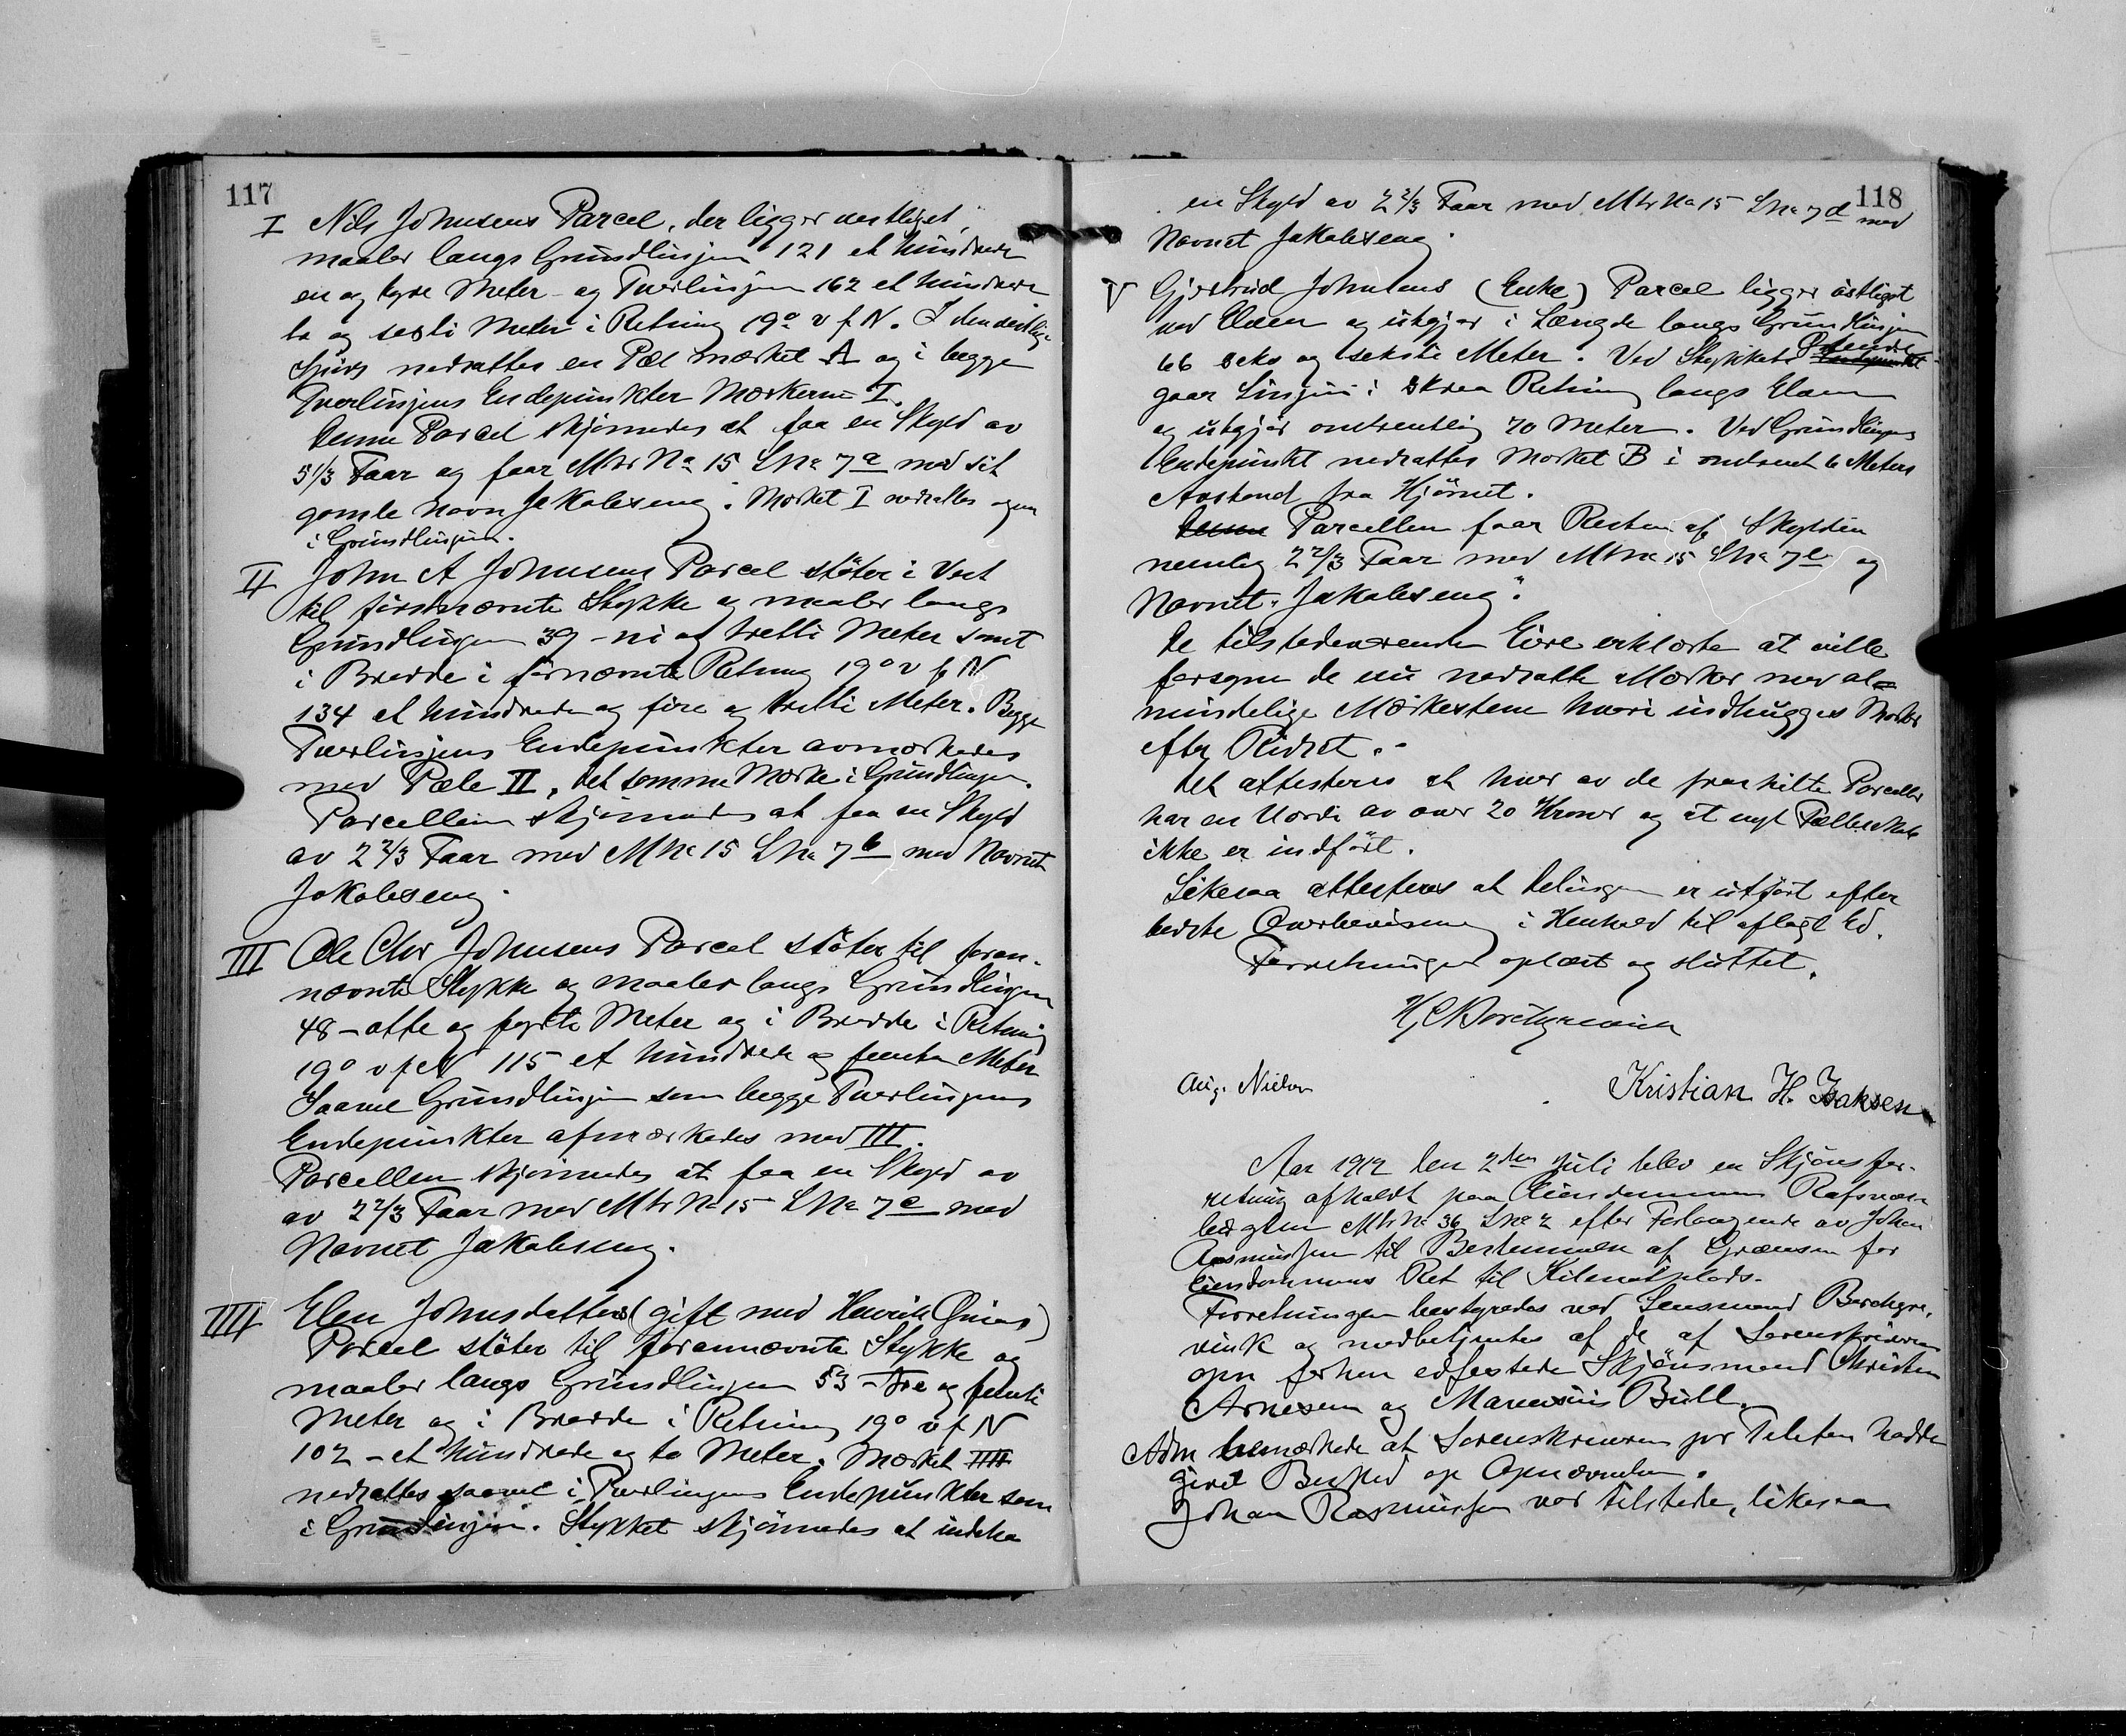 117
I Nils Johnsens Parcel, der ligger vestligst,
maaler langs Grundlinjen 121 et hundrede
en og tyve Meter og Tverlinjen 162 et hundrede
to og seksti Meter i Retning 19° v f N. I den vestlige
Spids nedsattes en Pæl mærket A og i begge
Tverlinjens Endepunkter Mærkerne I.
Denne Parcel skjønnedes at faa en Skyld av
5 1/3 Faar og faar Mtr No 15 LNo 7a med sit
gamle Navn Jakobseng. Mærket I nedsattes ogsaa
i Grundlinjen.
II John A Johnsens Parcel støter i Vest
til førstnævnte Stykke og maaler langs
Grundlinjen 39 - ni og tretti Meter samt
i Bredde i førnævnte Retning 19° v f N
134 et hundrede og fire og tretti Meter. Begge
Tverlinjens Endepunkter avmærkedes
med Pæle II, det samme Mærke i Grundlinjen.
Parcellen skjønnedes at faa en Skyld
av 2 2/3 Faar med MNo 15 LNo 7b med Navnet
Jakobseng.
III Ole Chr Johnsens Parcel støter til foran-
nævnte Stykke og maaler langs Grundlinjen
48 - otte og førti Meter og i Bredde i Retning
19° v f N 115 et hundrede og femten Meter
Saavel Grundlinjen som begge Tverlinjens
Endepunkter afmærkedes med III.
Parcellen skjønnedes at faa en Skyld av
av 2 2/3 Faar med Mtr No 15 LNo 7c med
Navnet Jakobseng.
IIII Elen Johnsdatters (gift med Henrik)
Parcel støter til forannævnte Stykke og
maaler langs Grundlinjen 53 - tre og femti
Meter og i Bredde i Retning 19° v f N
102 - et hundrede og to Meter. Mærket IIII
nedsattes saavel i Tverlinjens Endepunkter som
i Grundlinjen. Stykket skjønnedes at indeha
118
en Skyld av 2 2/3 Faar med Mtr No 15 LNo 7d med
Navnet Jakobseng.
V Gjertrud Johnsens (Enke) Parcel ligger østligst
ved Elven og utgjør i Længde langs Grundlinjen
66 seks og seksti Meter. Ved Stykkets Endepunkt
gaar Linjen i skraa Retning langs Elven
og utgjør omtrentlig 70 Meter. Ved Grundlinjens
Endepunkt nedsattes Mærket B i omtrent 6 Meters
Avstand fra Hjørnet.
Denne Parcellen faar Resten af Skylden
nemlig 2 2/3 Faar med MtrNo 15 LNo 7e og
Navnet "Jakobseng".
De tilstedeværende Eiere erklærte at ville
forsyne de nu nedsatte Mærker med al-
mindelige Mærkestene hvori indhugges Mærker
efter Ridset.-
Det attesteres at hver av de fraskilte Parceller
har en Værdi av over 20 Kroner og at nyt Fællesskab
ikke er indført.
Likesaa attesteres at Delingen er utført efter
bedste Overbevisning i Henhold til aflagt Ed.
Forretningen oplæst og sluttet.
H C Borchgrevink
Aug. Nielsen
Kristian H. Isaksen
Aar 1912 den 2den Juli blev en Skjønsfor-
retning afholdt paa Eiendommen
MtrNo 36 LNo 2 efter Forlangende av Johan
Rasmussen til Bestemmelse af Grænsen for
Eiendommens Ret til Kilenotplads.
Forretningen bestyredes ved Lensmand Borchgre-
vink og medbetjentes af de af Sorenskriveren
opn forhen edfestede Skjønsmænd Christen
Arnesen og Marensius Bull.
Adm bemærkede at Sorenskriveren pr Telefon hadde
givet Besked op Opnævnelsen.
Johan Rasmussen var tilstede, likesaa